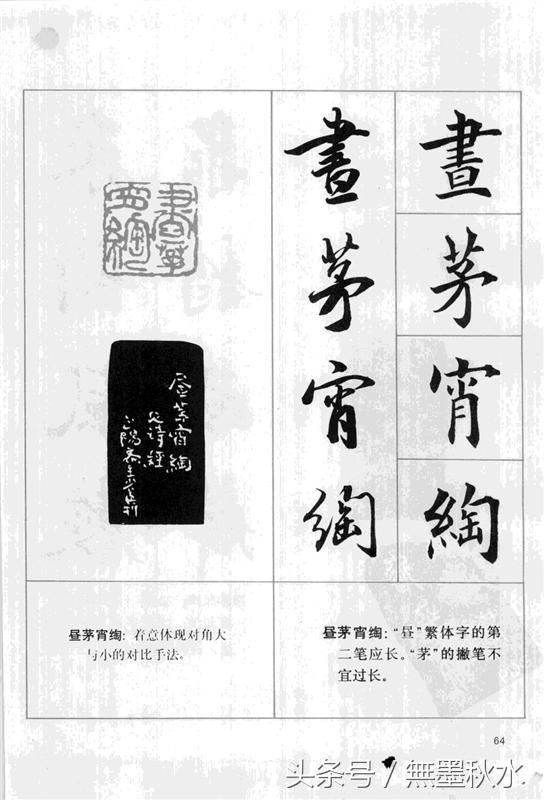 晝茅宵綯
晝茅宵綯
晝茅宵綯
昼茅宵綯
见诗经
昼茅宵绹:“昼”繁体字的第
二笔应长。“茅”的撇笔不
宜过长。
昼茅宵绹:着意体现对角大
与小的对比手法。
64
头条号 / 無墨秋水